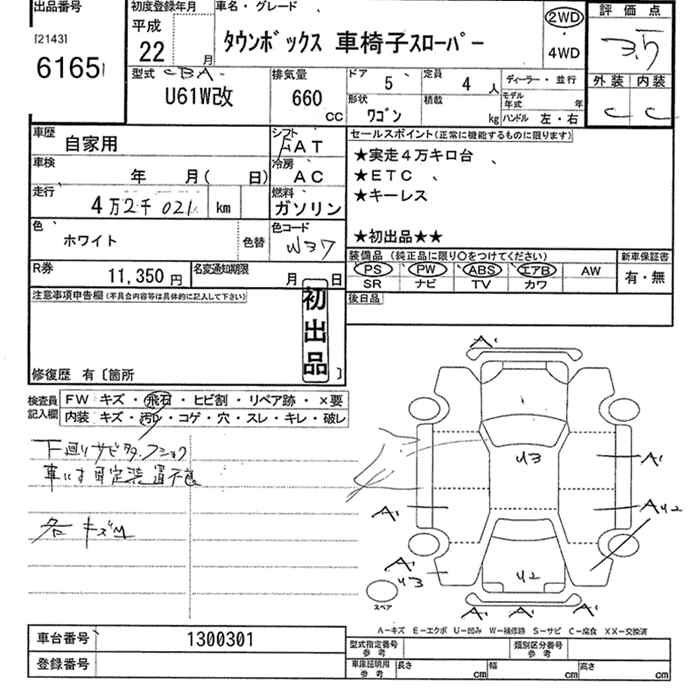 出品番号 初度登録年月 車名・グレード 評価点
[2143] 平成 2WD 3.5
6165 22 月 タウンボックス 車椅子スローパー ・ 4WD
型式 CBA 排気量 ドア 5 定員 4 人 ディーラー・並行 外装 内装
U61W改 660 CC 形状 ワゴン 積載 kg モデル年式 年 C C
ハンドル 左・右
車歴 自家用 シフト FAT セールスポイント(正常に機能するものに限ります)
車検 年 月( 日) 冷房 AC ★実走4万キロ台
走行 4万2千021 km 燃料 ガソリン ★ETC
★キーレス
色 ホワイト 色替 色コード W37 ★初出品★★
R券 11,350円 名変通知期限 月 日 装備品(純正品に限り○をつけてください) 新車保証書
PS PW ABS エアB AW 有・無
SR ナビ TV カワ
注意事項申告欄(不具合内容等は具体的に記入して下さい) 後日品
初出品
修復歴 有〔箇所 〕
検査員記入欄 FW キズ・飛石・ヒビ割・リペア跡・×要
内装 キズ・汚れ・コゲ・穴・スレ・キレ・破レ
下廻りサビ
車いす固定装置不良
各キズM
A1
U3 A1
A1 AU2
A1
U3 U2
スペア
A1 A1 A1
A-キズ E-エクボ U-凹み W-補修跡 S-サビ C-腐食 XX-交換済
車台番号 1300301 型式指定番号 参考 類別区分番号 参考
登録番号 車庫証明用 参考 長さ cm 幅 cm 高さ cm